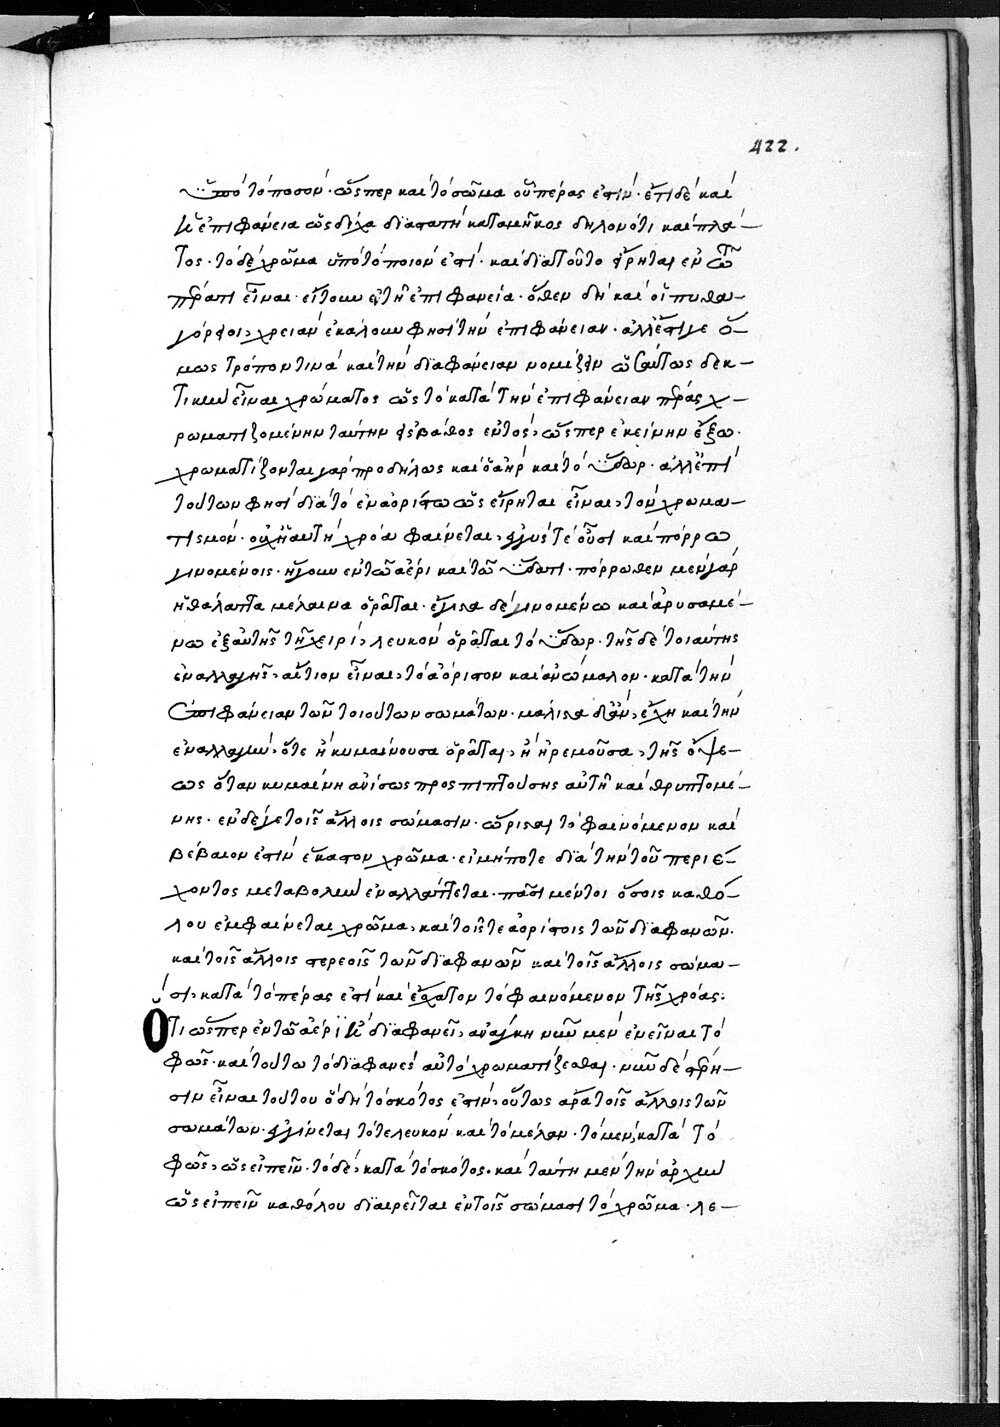 422.
ὑπὸ τὸ ποσόν· ὥσπερ καὶ τὸ σῶμα οὗ πέρας ἐστίν· ἔτι δὲ καὶ
ἡ ἐπιφάνεια ὡς δίχα διαστατὴ κατὰ μῆκος δηλονότι καὶ πλά-
τος· τὸ δὲ χρῶμα ὑπὸ τὸ ποιόν ἐστι· καὶ διατοῦτο εἴρηται ἐν τῶ
πέρατι εἶναι· εἴτουν ἐν τῇ ἐπιφανεία· ὅθεν δὴ καὶ οἱ πυθα-
γόρειοι, χρειὰν ἐκάλουν φησὶ τὴν ἐπιφάνειαν· ἀλλ' ἔστι γε ὅ-
μως τρόπον τινὰ καὶ τὴν διαφάνειαν νομίζειν ὡσαύτως δεκ-
τικὴν εἶναι χρώματος ὡς τὸ κατὰ τὴν ἐπιφάνειαν πέρας χ-
ρωματιζομένην ταύτην εἰς βάθος ἐντός, ὥσπερ ἐκείνην ἔξω·
χρωματίζονται γὰρ προδήλως καὶ ὁ ἀὴρ καὶ τὸ ὕδωρ· ἀλλ' ἐπὶ
τούτων φησὶ διὰ τὸ ἐν ἀορίστω ὡς εἴρηται εἶναι, τὸν χρωμα-
τισμόν· οὐχ ἡ αὐτὴ χρόα φαίνεται, ἐγγύς τε οὖσι καὶ πόρρω
γινομένοις· ἤγουν ἐν τῶ ἀέρι καὶ τῶ ὕδατι· πόρρωθεν μὲν γὰρ
ἡ θάλαττα μέλαινα ὁρᾶται· ἔγγιστα δὲ γινομένω καὶ ἀρυσαμέ-
νω ἐξ αὐτῆς τῇ χειρί, λευκὸν ὁρᾶται τὸ ὕδωρ· τῆς δὲ τοιαύτης
ἐναλλαγῆς, αἴτιον εἶναι, τὸ ἀόριστον καὶ ἀνώμαλον· κατὰ τὴν
ἐπιφάνειαν τῶν τοιούτων σωμάτων· μάλιστα δ' ἂν, ἔχη καὶ τὴν
ἐναλλαγὴν, ὅτε ἢ κυμαίνουσα ὁρᾶται, ἢ ἠρεμοῦσα, τῆς ὄψε-
ως ὅταν κυμαίνη ἀνίσως προσπιπτούσης αὐτῇ καὶ θρυπτομέ-
νης· ἐν δέ γε τοῖς ἄλλοις σώμασιν· ὥρισται τὸ φαινόμενον καὶ
βέβαιον ἐστὶν ἕκαστον χρῶμα· εἰ μήποτε διὰ τὴν τοῦ περιέ-
χοντος μεταβολὴν ἐναλλάττεται· πᾶσι μέντοι ὅσοις καθό-
λου ἐμφαίνεται χρῶμα, καὶ τοῖς τε ἀορίστοις τῶν διαφανῶν·
καὶ τοῖς ἄλλοις στερεοῖς τῶν διαφανῶν καὶ τοῖς ἄλλοις σώμα-
σι, κατὰ τὸ πέρας ἐστὶ καὶ ἔσχατον τὸ φαινόμενον τῆς χρόας:
Ὅτι ὥσπερ ἐν τῶ ἀέρι ἢ διαφανεῖ, ἀνάγκη νῦν μὲν ἐνεῖναι τὸ
φῶς· καὶ τούτω τὸ διαφανὲς αὐτὸ χρωματίζεσθαι· νῦν δὲ στέρη-
σιν εἶναι τούτου ὃ δὴ τὸ σκότος ἐστίν, οὕτως ἄρα τοῖς ἄλλοις τῶν
σωμάτων· ἐγγίνεται τό τε λευκὸν καὶ τὸ μέλαν· τὸ μὲν, κατὰ τὸ
φῶς, ὡς εἰπεῖν· τὸ δὲ, κατὰ τὸ σκότος· καὶ ταύτη μὲν τὴν ἀρχὴν
ὡς εἰπεῖν καθόλου διαιρεῖται ἐν τοῖς σώμασι τὸ χρῶμα· λε-